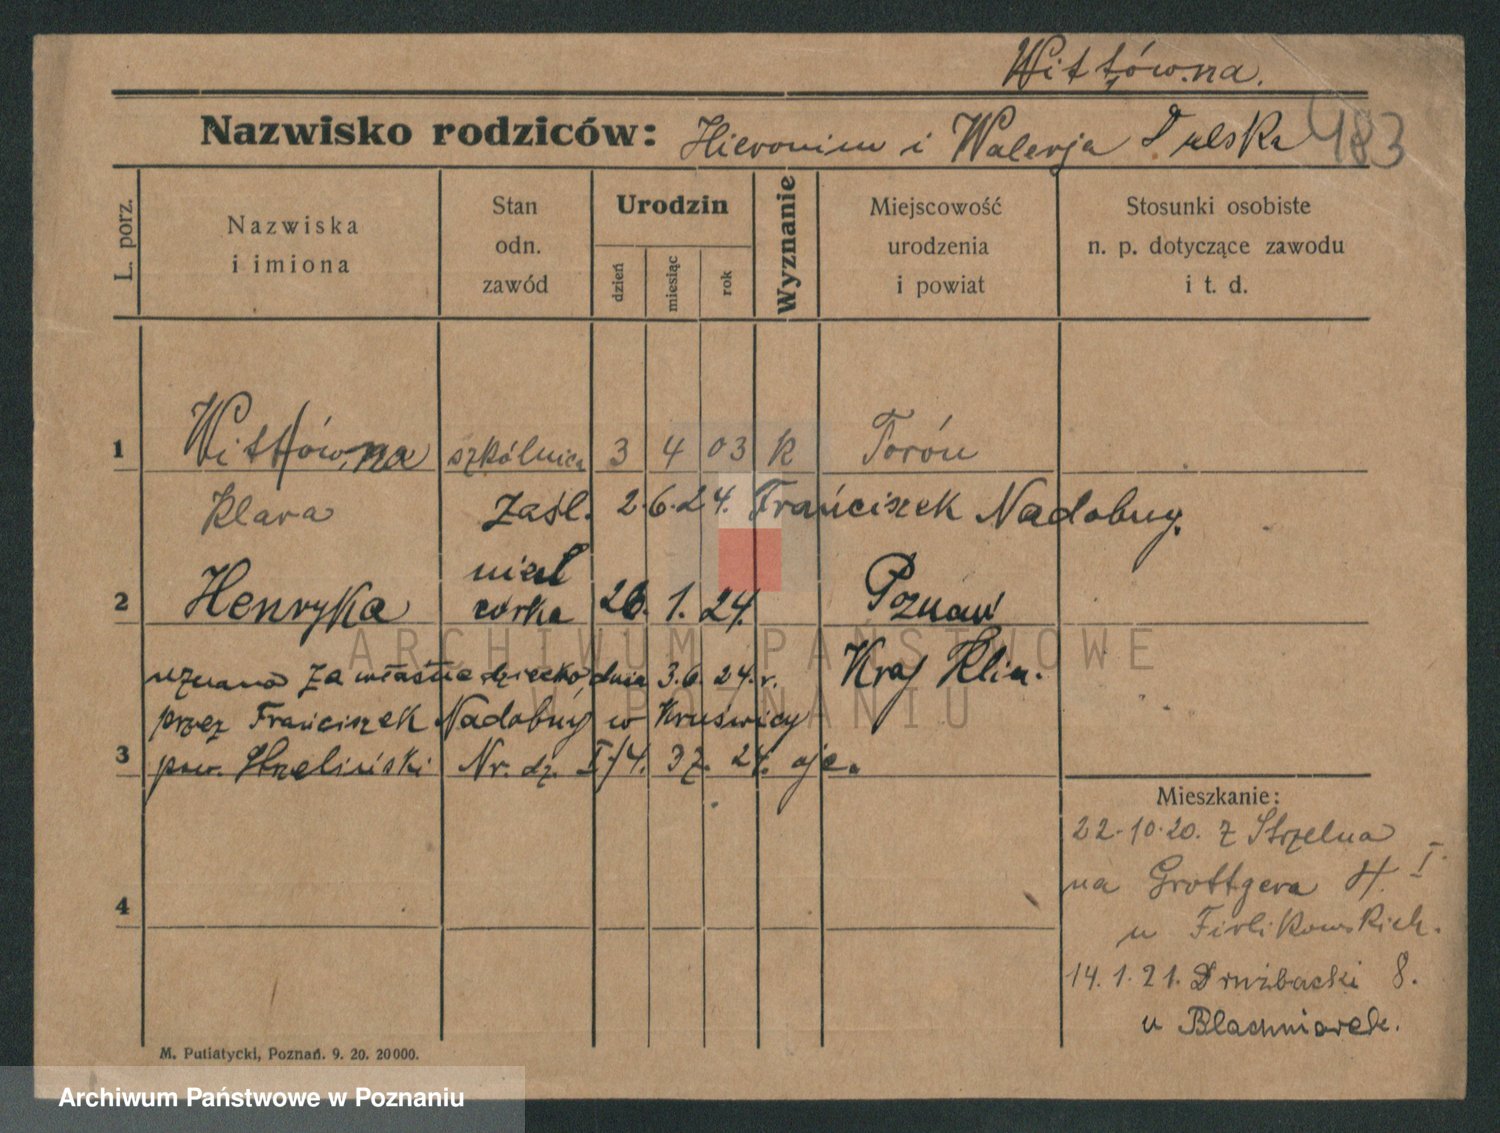 Wittówna.
Nazwisko rodziców: Hieronim i Walerja Dulska 483
L. porz.
Nazwiska i imiona
Stan odn. zawód
Urodzin
dzień
miesiąc
rok
Wyznanie
Miejscowość urodzenia i powiat
Stosunki osobiste n. p. dotyczące zawodu i t. d.
1 Wittówna szkólnica 3 4 03 k Toróń
Klara Zaśl. 2.6.24. Frańciszek Nadobny.
nieśl
2 Henryka córka 26. 1. 24. Poznań
uznano za własne dziecko dnia 3.6.24.r. Kraj Klin.
przez Frańciszek Nadobny w Kruświcy
3 pow. Strzeliński Nr. dz. I/4. 37. 24.
Mieszkanie:
22.10.20. z Strzelna
na Grottgera 4. I
u Firlikowskich.
14.1.21. Drużbacki 8.
4
u Blachniarek.
M. Putiatycki, Poznań. 9. 20. 20000.
ARCHIWUM PAŃSTWOWE
W POZNANIU
Archiwum Państwowe w Poznaniu